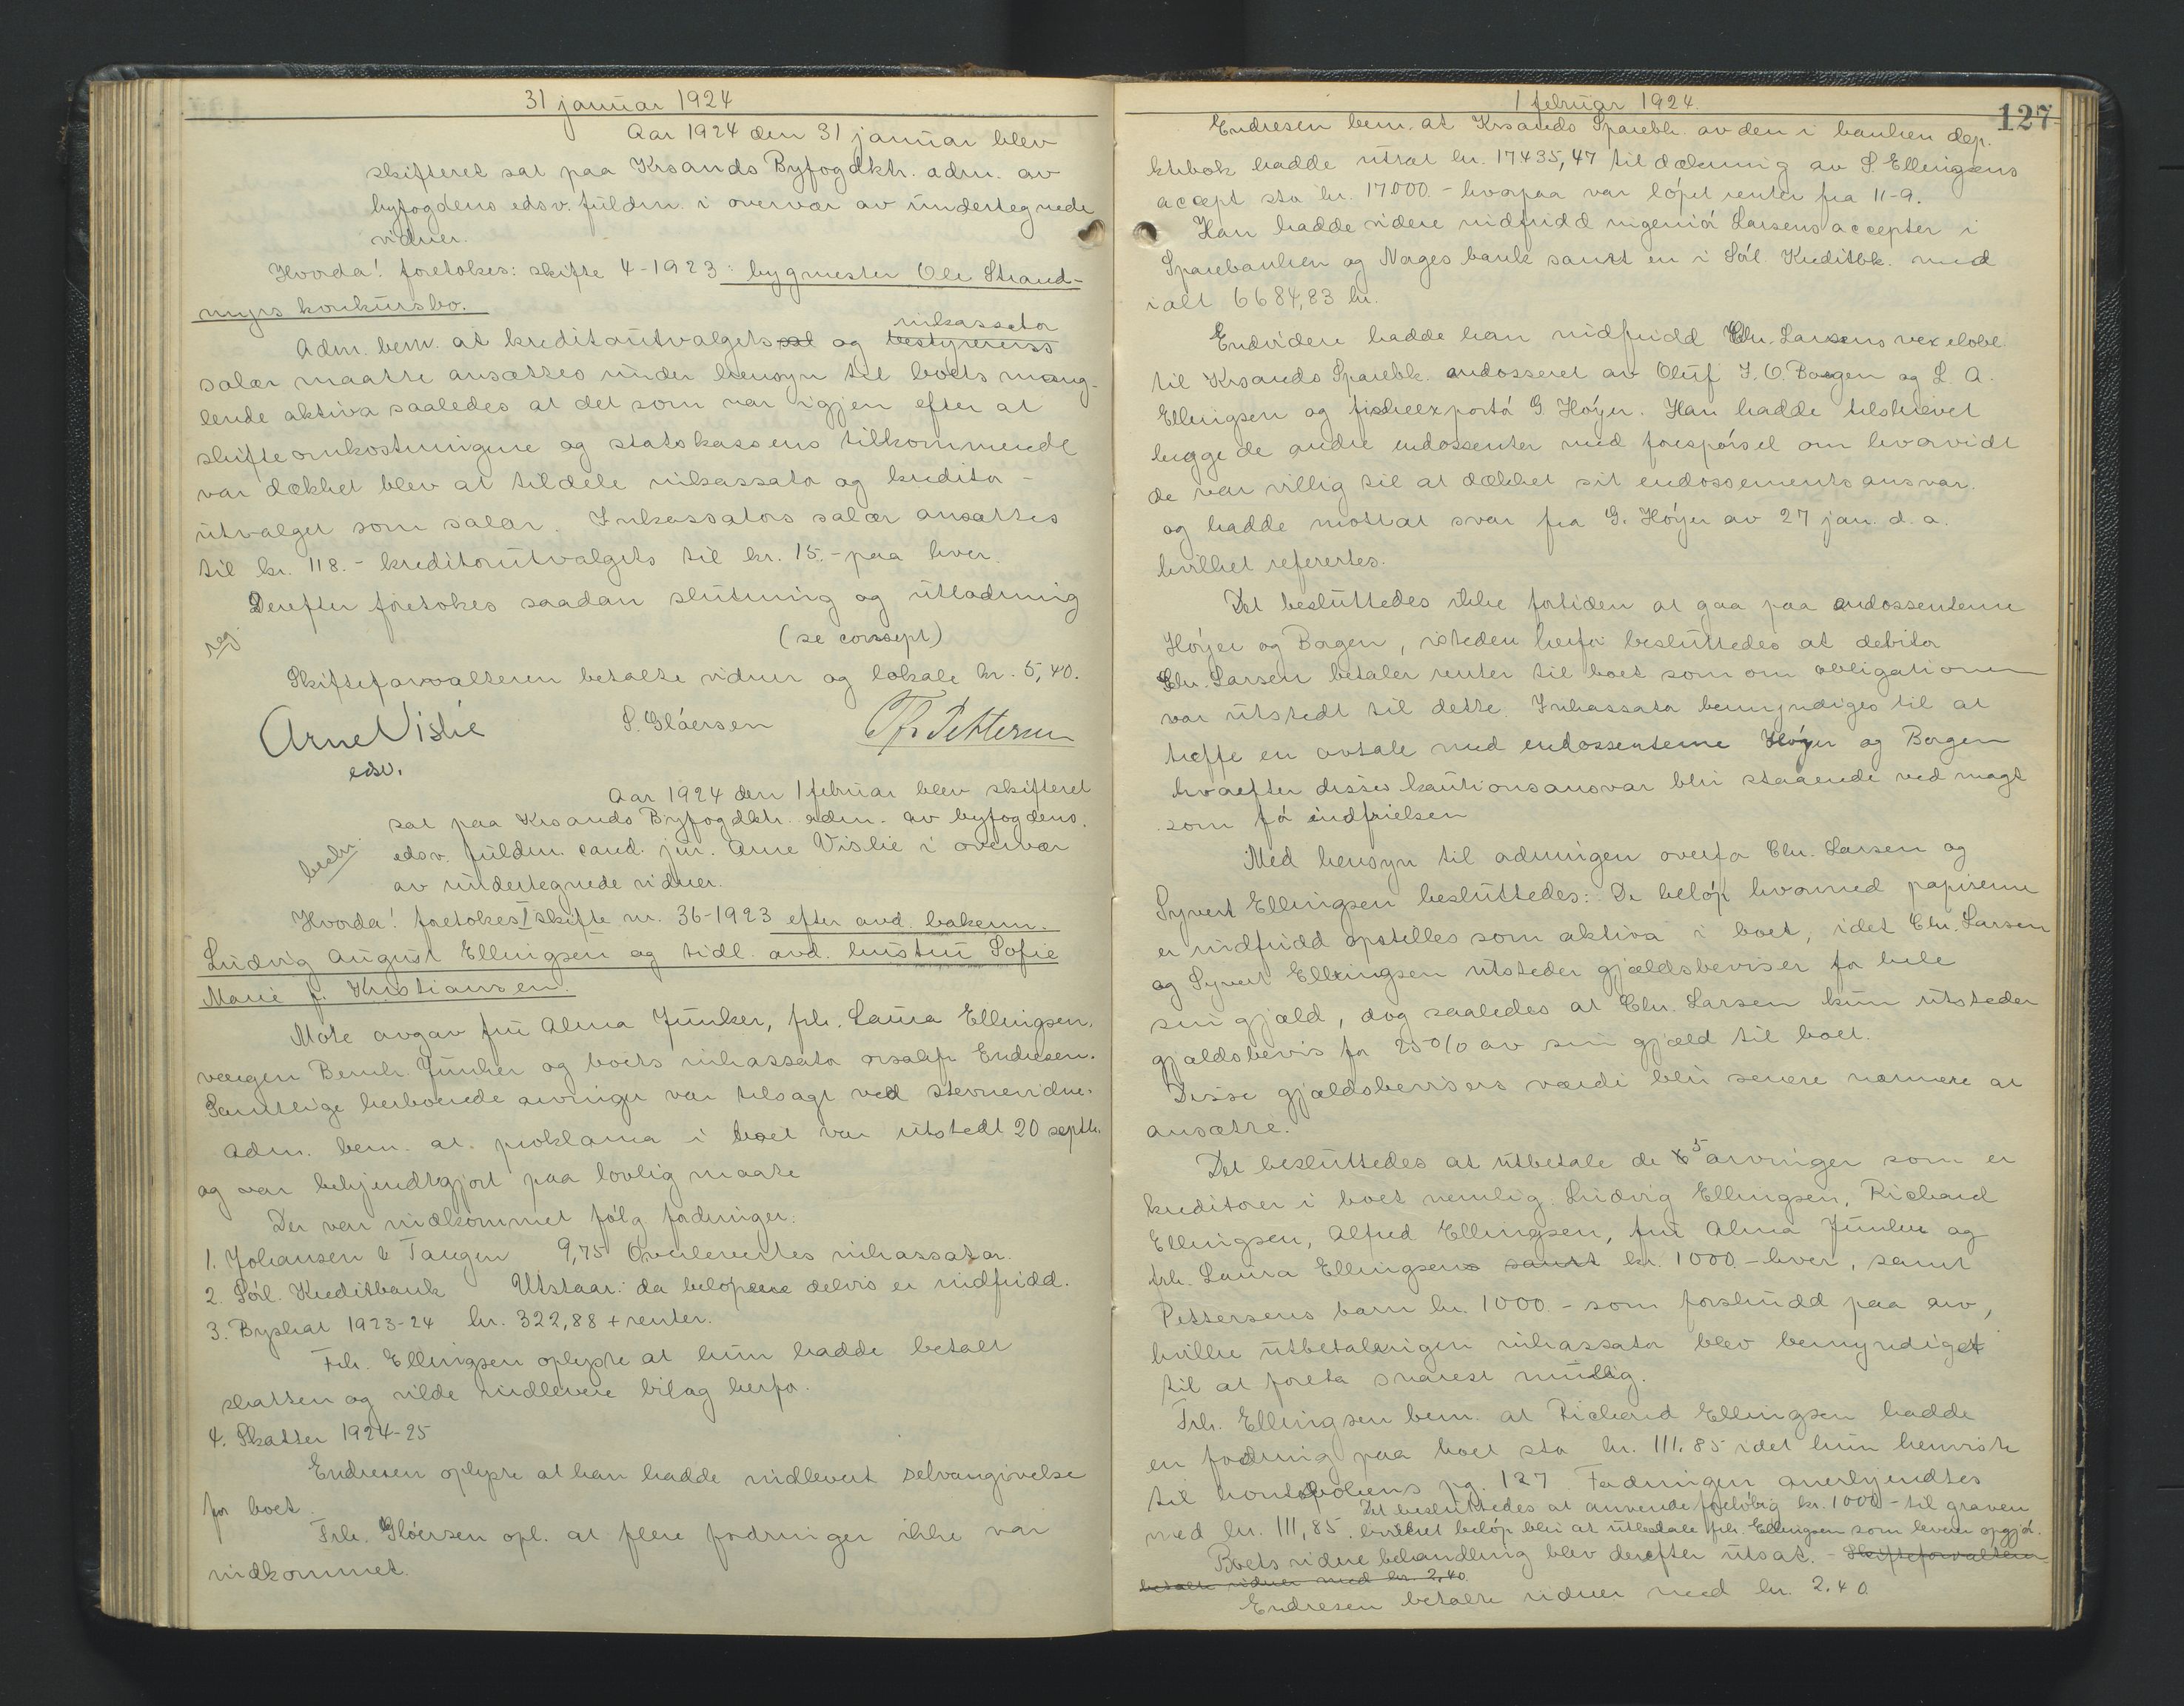 31 januar 1924
Aar 1924 den 31 januar blev
skifteret sat paa Krsands Byfogdktr. adm. av
byfogdens edsv. fuldm. i overvær av undertegnede
vidner.
Hvorda! foretokes: skifte 4-1923: bygmester Ole Strand-
myrs konkursbo.
inkassator
Adm. bem. at kreditorutvalgets sal og bestyrerens
salær maatte ansættes under hensyn til boets mang-
lende aktiva saaledes at det som var igjen efter at
skifteomkostningene og statskassens tilkommende
var dækket blev at tildele inkassator og kreditor-
utvalget som salær. Inkassators salær ansattes
til kr. 118.- kreditorutvalgets til kr. 15.- paa hver.
Derefter foretokes saadan slutning og utlodning
(se concept)
reg.
Skifteforvalteren betalte vidner og lokale kr. 5,40.
Arne Vislie S. Glóersen Th. Pettersen
edsv.
Aar 1924 den 1 februar blev skifteret
sat paa Krsands Byfogdktr. adm. av byfogdens
edsv. fuldm. cand. jur. Arne Vislie i overvær
beskr.
av undertegnede vidner.
Hvorda! foretokes I skifte nr. 36-1923 efter avd. bakerm.
Ludvig August Ellingsen og tidl. avd. hustru Sofie
Marie f. Kristiansen.
Møte avgav fru Alma Junker, frk. Laura Ellingsen,
værgen Bernh. Junker og boets inkassator orsakfr. Endresen.
Samtlige herboende arvinger var tilsagt ved stevnevidne.
Adm. bem. at proklama i boet var utstedt 20 septb.
og var bekjendtgjort paa lovlig maate
Der var indkommet følg. fordringer:
1. Johansen & Tangen 9,75 Overlevertes inkassator.
2. Sórl. Kreditbank Utstaar: da belópene delvis er indfridd.
3. Byskat 1923-24 kr. 322,88 + renter.
Frk. Ellingsen oplyste at hun hadde betalt
skatten og vilde indlevere bilag herfor.
4. Skatter 1924-25
Endresen oplyste at han hadde indlevert selvangivelse
for boet.
Frk. Glóersen opl. at flere fordringer ikke var
indkommet.
1 februar 1924.
127
Endresen bem. at Krsands Sparebk. av den i banken dep.
ktrbok hadde uttat kr. 17435,47 til dækning av S. Ellingsens
accept sto kr. 17000.- hvorpaa var lópet renter fra 11-9.
Han hadde videre indfridd ingeniór Larsens accepter i
Sparebanken og Norges bank samt en i Sórl. Kreditbk. med
ialt 6684,83 kr.
Endvidere hadde han indfridd Chr. Larsens vexelobl.
til Krsands Sparebk. endosseret av Oluf J. O. Borgen og L. A.
Ellingsen og fiskeexportór G. Hóyer. Han hadde tilskrevet
begge de andre endossenter med forespórsel om hvorvidt
de var villig til at dækket sit endossementsansvar.
og hadde mottat svar fra G. Hóyer av 27 jan. d. a.
hvilket refereres.
Det besluttedes ikke fortiden at gaa paa endossentene
Hóyer og Borgen, isteden herfor besluttedes at debitor
Chr. Larsen betaler renter til boet som om obligationen
var utstedt til dette. Inkassator bemyndiges til at
træffe en avtale med endossentene Hóyer og Borgen
hvorefter disses kautionsansvar blir staaende ved magt
som fór indfrielsen
Med hensyn til ordningen overfor Chr. Larsen og
Syvert Ellingsen besluttedes: De belóp hvormed papirerne
er indfridd opstilles som aktiva i boet, idet Chr. Larsen
og Syvert Ellingsen utsteder gjældsbeviser for hele
sin gjæld, dog saaledes at Chr. Larsen kun utsteder
gjældsbevis for 25% av sin gjæld til boet.
Disse gjældsbevisers værdi blir senere nærmere at
ansætte.
Det besluttedes at utbetale de 6 5 arvinger som er
kreditorer i boet nemlig Ludvig Ellingsen, Richard
Ellingsen, Alfred Ellingsen, fru Alma Junker og
frk. Laura Ellingsen samt kr. 1000 - hver, samt
Pettersens barn kr. 1000.- som forskudd paa arv,
hvilke utbetalinger inkassator blev bemyndiget
til at foreta snarest mulig.
Frk. Ellingsen bem. at Richard Ellingsen hadde
en fordring paa boet sto kr. 111.85 idet hun henviste
til kontobokens pg. 127. Fordringen anerkjendtes
med kr. 111,85. Det besluttedes at anvende foreløbig kr. 1000 - til graven
hvilket belóp blir at utbetale frk. Ellingsen som leverer opgjór.
Boets videre behandling blev derefter utsat. - Skifteforvalteren
betalte vidner med kr. 2,40
Endresen betalte vidner med kr. 2.40